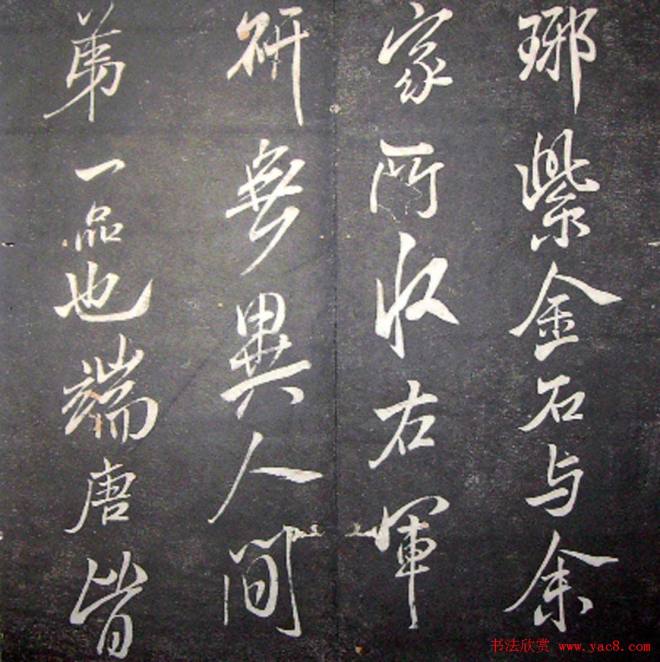 琊紫金石与余
家所收右軍
研無異人間
第一品也端唐皆
书法欣赏 www.yac8.com